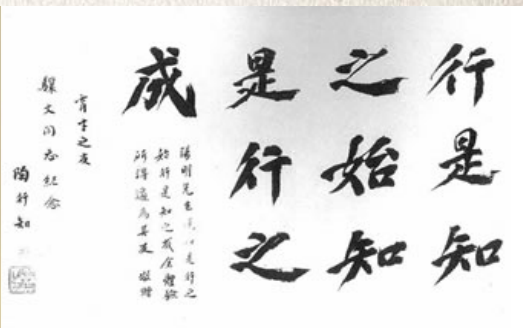 行是知
之始知
是行之
成
陽明先生說知是行之
始行是知之成余體驗
所得適為其反 敬贈
育才之友
文同志紀念
陶行知